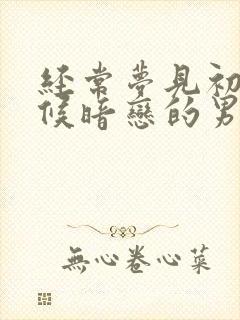 經常夢見初
候暗戀的男
無心卷心菜